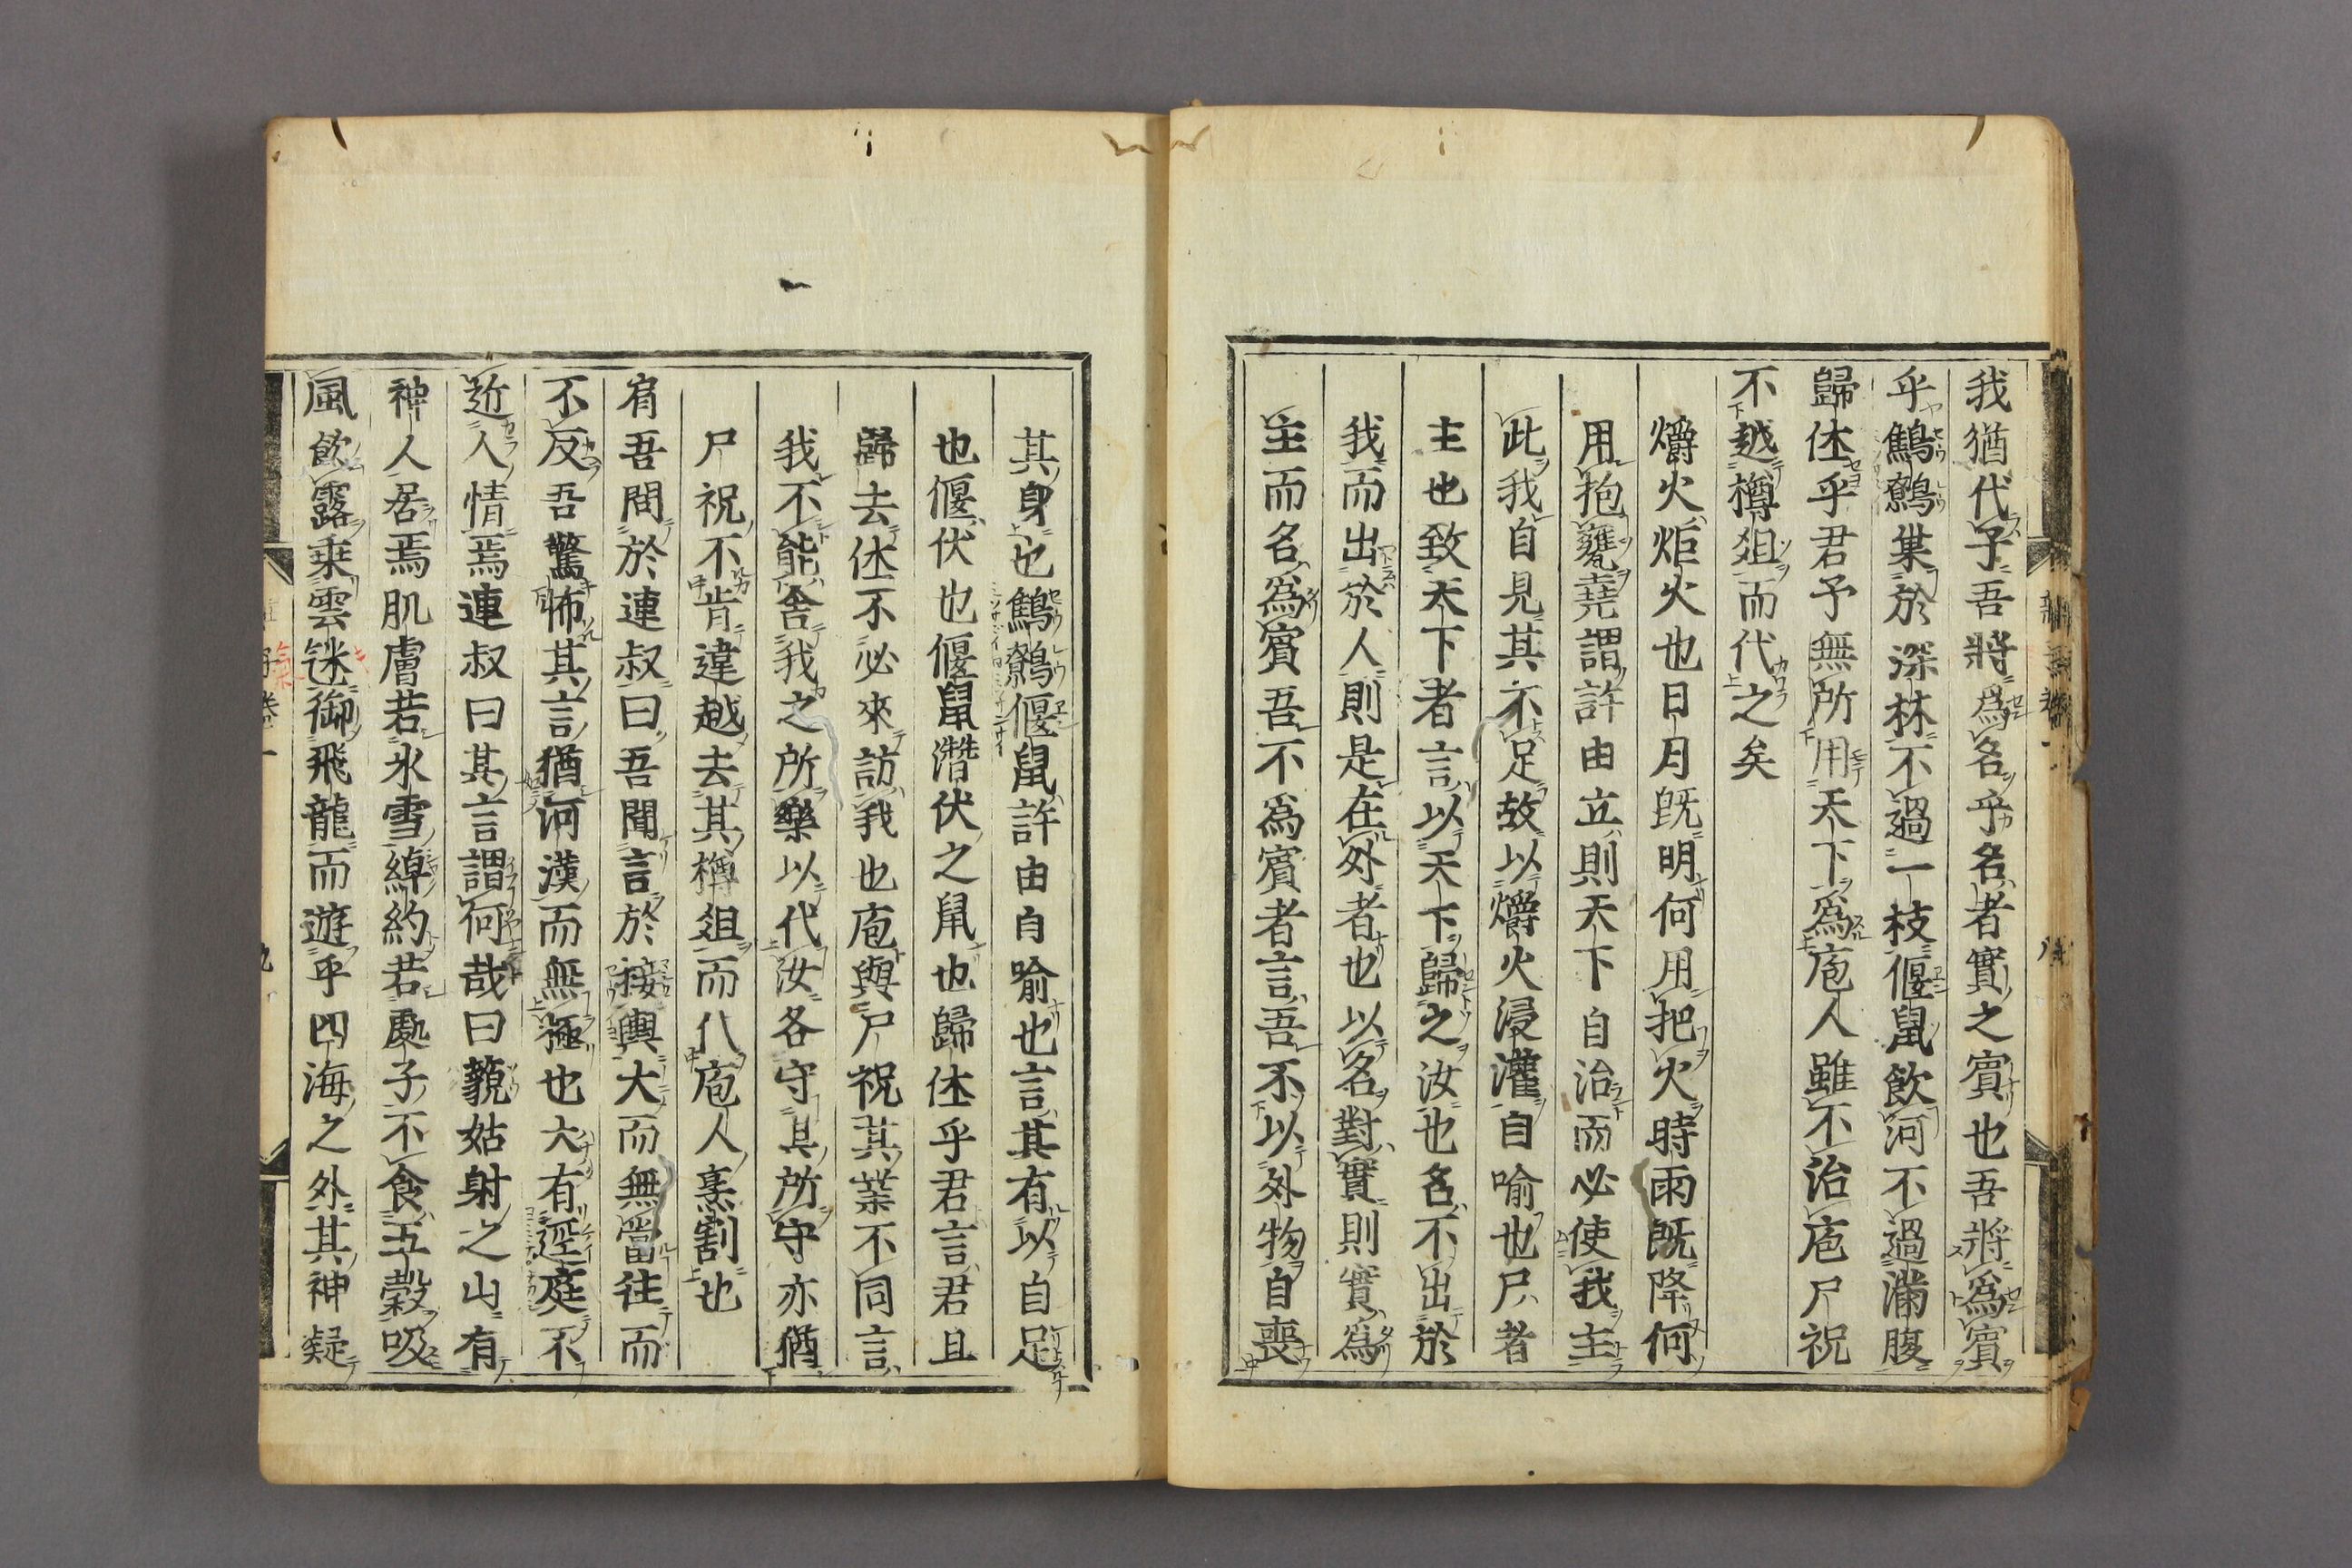 我猶代子吾將爲名乎名者實之賓也吾將爲賓
乎鷦鷯巢於深林不過一枝偃鼠飲河不過滿腹
歸休乎君予無所用天下爲庖人雖不治庖尸祝
不越樽俎而代之矣
爝火炬火也日月既明何用把火時雨既降何
用抱甕堯謂許由立則天下自治而必使我主
此我自見其不足故以爝火浸灌自喻也尸者
主也致天下者言以天下歸之汝也名不出於
我而出於人則是在外者也以名對實則實爲
主而名爲賓吾不爲賓者言吾不以外物自喪
其身也鷦鷯偃鼠許由自喻也言其有以自足
也偃伏也偃鼠潛伏之鼠也歸休乎君言君且
歸去休不必來訪我也庖與尸祝其業不同言
我不能舍我之所樂以代汝各守其所守亦猶
尸祝不肯違越去其樽俎而代庖人烹割也
肩吾問於連叔曰吾聞言於接輿大而無當往而
不反吾驚怖其言猶河漢而無極也大有逕庭不
近人情焉連叔曰其言謂何哉曰藐姑射之山有
神人居焉肌膚若氷雪綽約若處子不食五穀吸
風飲露乗雲御飛龍而遊乎四海之外其神凝